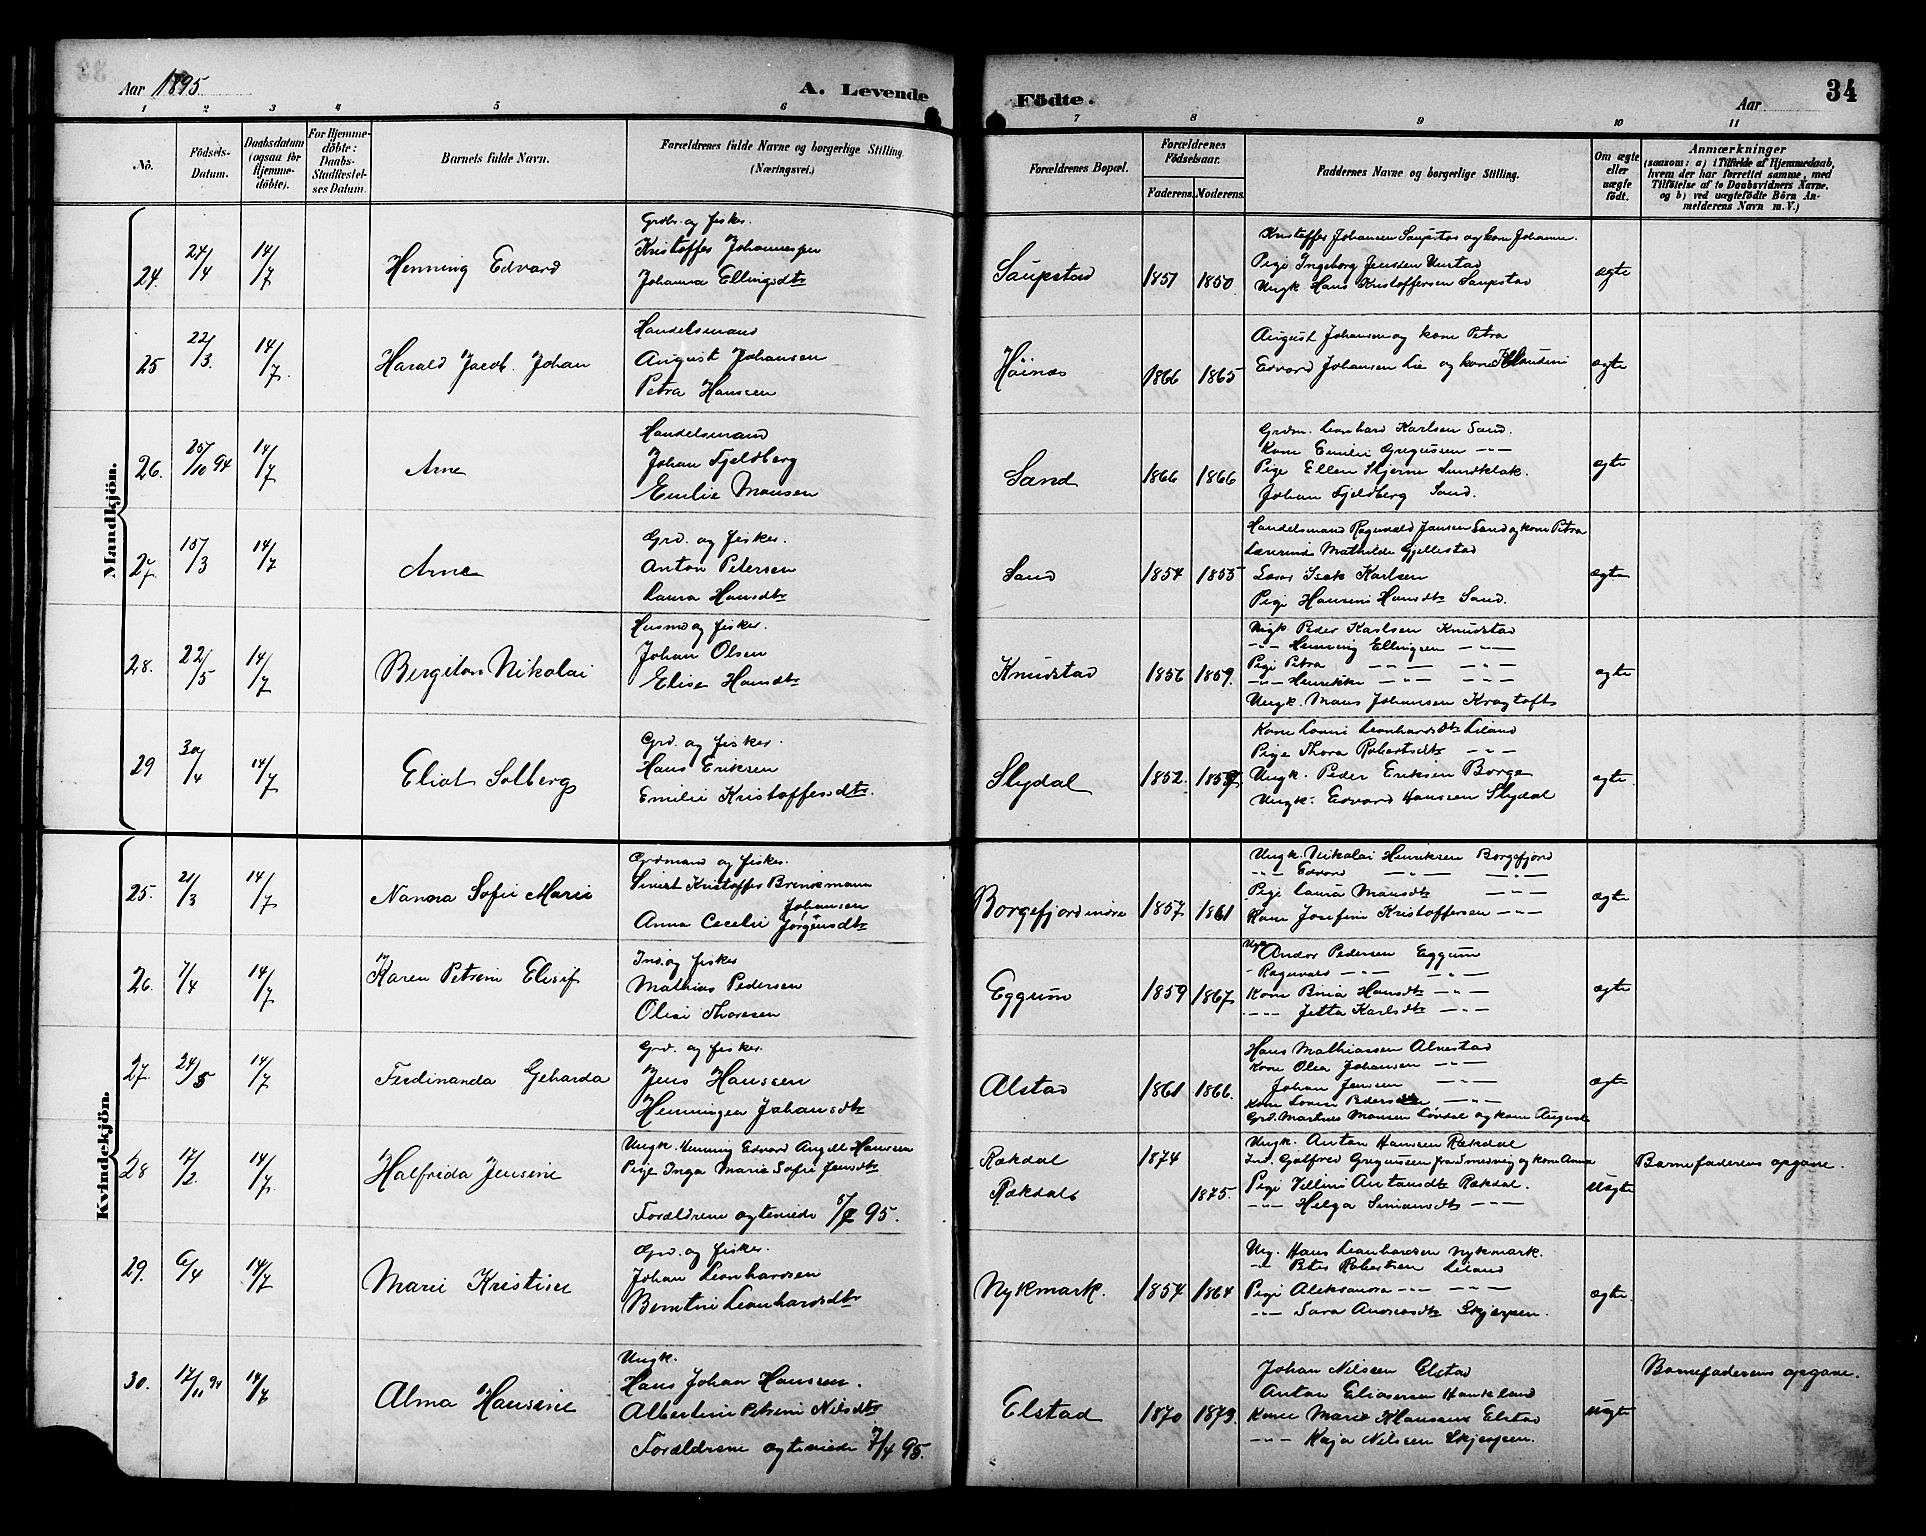 Aar 1895
A. Levende
Födte.
Aar
34
1 2 3 4 5 6 7 8 9 10 11
No.
Födsels-Datum.
Daabsdatum (ogsaa for Hjemme-döbte).
For Hjemme-döbte: Daabs-Stadfæstel-ses Datum.
Barnets fulde Navn.
Forældrenes fulde Navne og borgerlige Stilling (Næringsvei.)
Forældrenes Bopæl.
Forældrenes Födselsaar.
Faderens. Moderens.
Faddernes Navne og borgerlige Stilling.
Om ægte eller uægte födt.
Anmærkninger
(saasom: a) i Tilfælde af Hjemmedaab,
hvem der har forrettet samme, med
Tilföielse af to Daabsvidners Navne.
og b) ved uægtefödte Börn An-
melderens Navn m. V.)
Mandkjön.
24. 24/4 14/7 Henning Edvard
Grdbr. og fisker.
Kristoffer Johannesen
Johanna Ellingsdtr
Saupstad 1851 1850
Kristoffer Johansen Saupstad og kone Johanna.
Pige Ingeborg Jensen Unstad
Ungk Hans Kristoffersen Saupstad
ægte
25 22/3. 14/7. Harald Jacob. Johan
Handelsmand
August Johansen
Petra Hansen
Höinæs 1866 1865
August Johansen og kone Petra
Edvard Johansen Lie og kone Klaudine
ægte
26. 25/10 94 14/7 Arne
Handelsmand
Johan Fjeldberg
Emilie Monsen
Sand 1866 1866
Grdm. Leonhard Karlsen Sand.
Kone Emilie Gregussen -"-
Pige Ellen Skjerne Sundklak.
Johan Fjeldberg Sand.
ægte
27. 15/3 14/7 Arne
Grd. og fisker.
Anton Petersen
Laura Hansdtr
Sand 1854 1855
Handelsmand Ragnvald Jansen Sand og kone Petra
Lærerinde Mathilde Gjellestad
Lærer Isak Karlsen
Pige Hansine Hansdtr Sand.
ægte
28. 22/5 14/7 Bergiton Nikolai
Husmd og fisker.
Johan Olsen
Elise Hansdtr
Knudstad 1856 1859.
Ungk Peder Karlsen Knudstad
-"- Henning Ellingsen -"-
Pige Petra -"- -"-
-"- Henrikke -"- -"-
Ungk. Mons Johansen Kragtoft
ægte
29 30/4 14/7 Eliot Solberg
Grd. og fisker.
Hans Eriksen
Emilie Kristoffersdtr.
Slydal 1852. 1859
Kone Lovise Leonhardsdtr Leland
Pige Thora Robertsdtr -"-
Ungk. Peder Eriksen Borge
Ungk. Edvard Hansen Slydal
ægte.
Kvindekjön.
25. 21/3 14/7 Nanna Sofie Marie
Grdmand og fisker.
Sivert Kristoffer Brinkmann
Johansen
Anna Cecelie Jørgensdtr
Borgefjord indre 1857 1861
Ungk. Nikolai Henriksen Borgefjord
-"- Edvard -"- -"-
Pige Laura Monsdtr -"-
Kone Josefine Kristoffersen -"-
ægte
26. 7/4 14/7 Karen Petrine Elisif
Ind. og fisker
Mathias Pedersen
Olise Thoresen
Eggum 1859 1867
Ungk Andor Pedersen Eggum
- Ragnvald -"- -"-
Kone Bina Hansdtr -"-
-"- Jetta Karlsdtr -"-
ægte
27. 24/5 14/7 Ferdinanda Geharda
Grd. og fisker.
Jens Hansen
Henningea Johansdtr
Alstad 1861 1866.
Hans Mathiassen Alvestad
Kone Olea Johansen -"-
Johan Jensen -"-
Kone Lovise Pedersen -"-
Grd. Martines Monsen Løvdal og kone Auguste
ægte
28 17/2. 14/7. Halfrida Jensine
Ungk. Henning Edvard Angell Hansen
Pige Inga Marie Sofie Jensdtr
Forældrene ægteviede 5/7 95.
Rækdal 1874
Rækdal 1875.
Ungk. Anton Hansen Rækdal
Ind. Gotfred Gregussen fra Smedvig og kone Anna
Pige Velline Antonsdtr Rækdal.
-"- Helga Simonsdtr -"-
Uægte
Barnefaderens opgave.
29. 6/4 14/7 Marie Kristine
Grd. og fisker.
Johan Leonhardsen
Berntine Leonhardsdtr
Nykmark. 1854 1864
Ung. Hans Leonhardsen Nykmark.
-"- Peter Robertsen Leland
Pige Aleksandra -"- -"-
-"- Sara Andreasdtr Skjerpen.
ægte.
30. 17/11 94 14/7 Alma Hansine
Ungk.
Hans Johan Hansen.
Albertine Petrine Nilsdtr
Forældrene ægteviede 7/4 95.
Elstad 1870 1873.
Johan Nilssen Elstad
Anton Eliassen Haukland
Kone Marie Klausen Elstad
-"- Kaja Nilssen Skjerpen.
uægte
Barnefaderens opgave.